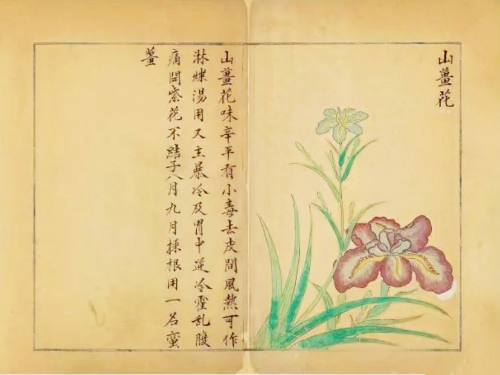 山薑花
山薑花味辛平有小毒去皮間風熱可作
淋煠湯用又主暴冷及胃中逆冷霍亂腹
痛開紫花不結子八月九月採根用一名蛮
薑